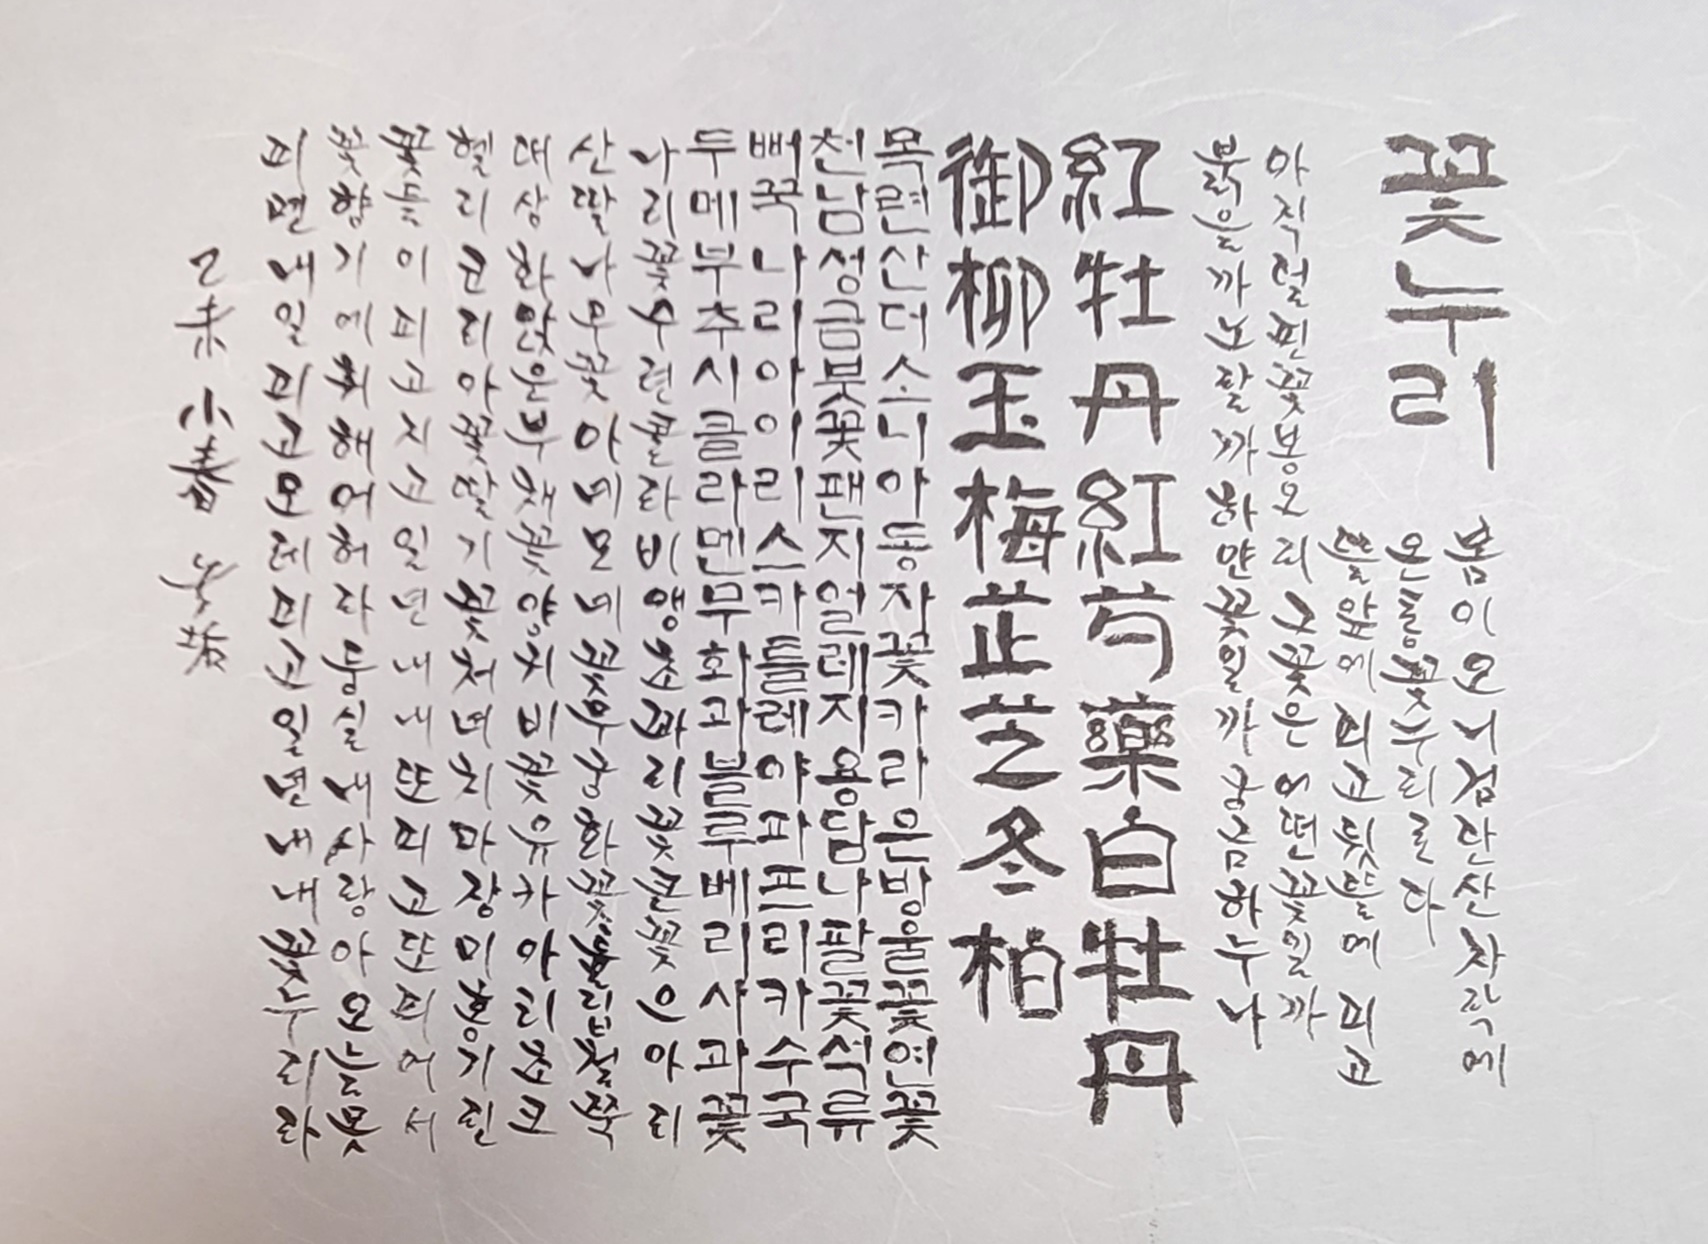 꽃누리
봄이오니검단산자락에
온통꽃누리로다
뜰앞에 피고뒷뜰에 피고
아직덜핀꽃봉오리 그꽃은 어떤꽃일까
붉을까 노랄까 하얀꽃일까 궁금하누나
紅牡丹紅芍藥白牡丹
御柳玉梅芷芝冬柏
목련산더소니아동자꽃카라은방울꽃연꽃
천남성금붓꽃팬지얼레지용담나팔꽃석류
뻐꾹나리아이리스카틀레야파프리카수국
두메부추시클라멘무화과블루베리사과꽃
나리꽃수련콜라비앵초꽈리꽃큰꽃으아리
산딸나무꽃아네모네꽃무궁화꽃튤립철쭉
대상화앉은부채꽃양지비꽃유카아리초크
헬리코리아꽃딸기꽃처녀치마장미홍기린
꽃들이피고지고일년내내또피고또피어서
꽃향기에취해어허라둥실내사랑아오늘못
피면내일피고모레피고일년내내꽃누리라
乙未 小春